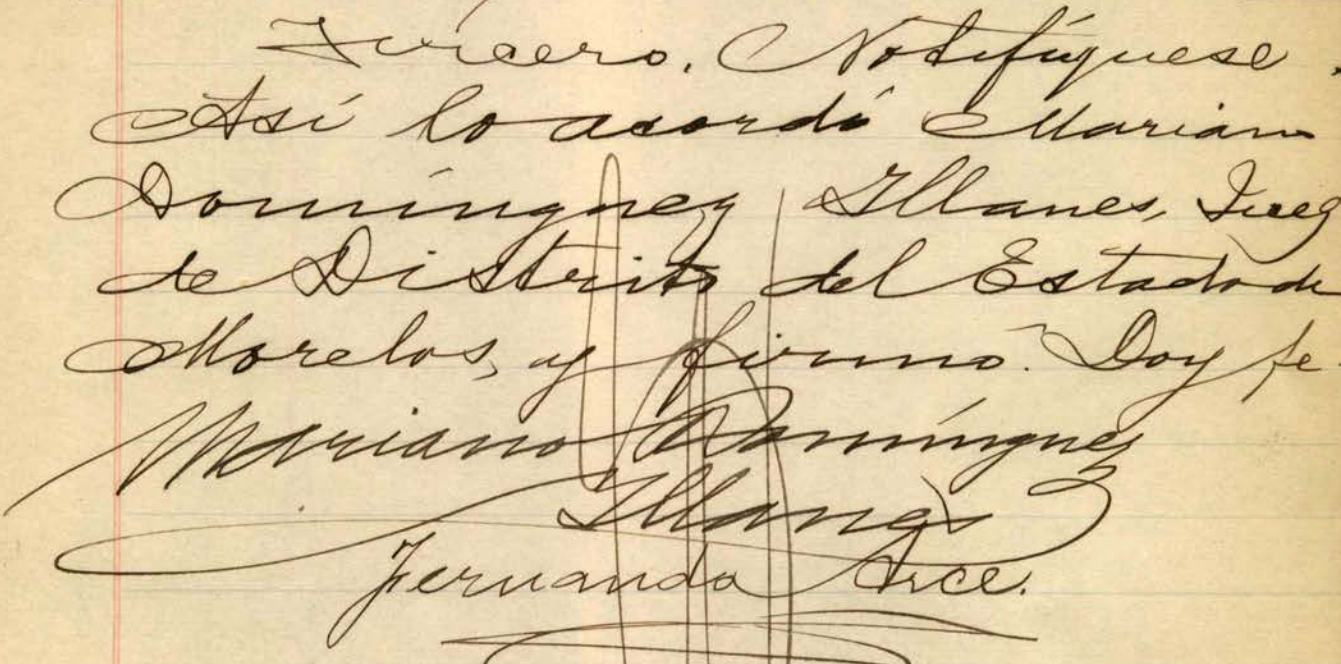 Tercero. Notifíquese.
Así lo acordó Mariano
Domínguez Illanes, Juez
de Distrito del Estado de
Morelos, y firmó. Doy fe
Mariano Domínguez
Illanes
Fernando Arce.